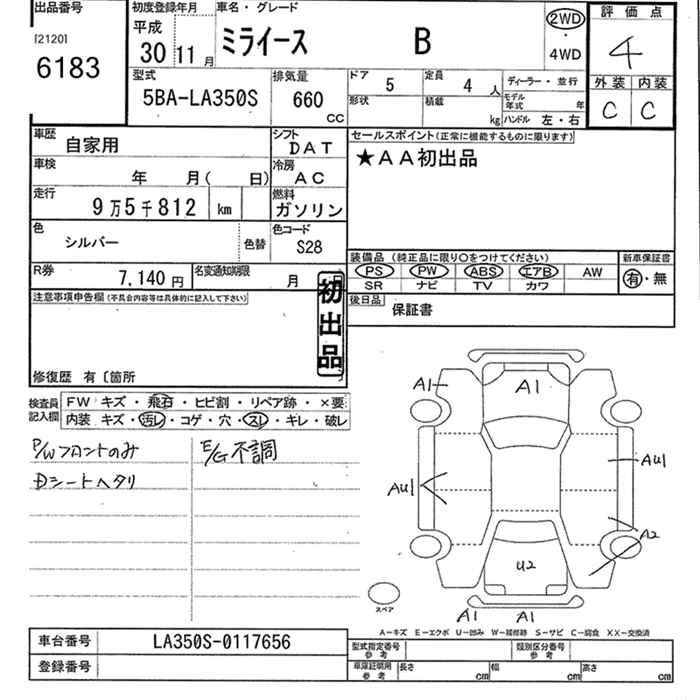 出品番号
[2120]
6183
初度登録年月
平成
30 11 月
車名・グレード
ミライース B
2WD
・
4WD
評価点
4
外装 内装
C C
型式
5BA-LA350S
排気量
660
CC
ドア
5
定員
4 人
ディーラー・並行
形状
積載
kg
モデル年式 年
ハンドル 左・右
車歴
自家用
シフト
DAT
車検
年 月( 日)
冷房
AC
走行
9万5千812 km
燃料
ガソリン
色
シルバー
色替
色コード
S28
R券
7,140 円
名変通知期限
月 日
セールスポイント(正常に機能するものに限ります)
★AA初出品
装備品 (純正品に限り○をつけてください)
新車保証書
PS PW ABS エアB AW
有・無
SR ナビ TV カワ
後日品
保証書
注意事項申告欄(不具合内容等は具体的に記入して下さい)
初出品
修復歴 有〔箇所
検査員記入欄
FW キズ・飛石・ヒビ割・リペア跡・×要
内装 キズ・汚レ・コゲ・穴・スレ・キレ・破レ
P/Wフロントのみ
E/G不調
Dシートヘタリ
A1
A1
AU1
AU1
A2
U2
A1
A1
スペア
A-キズ E-エクボ U-凹み W-補修跡 S-サビ C-腐食 XX-交換済
車台番号
LA350S-0117656
登録番号
型式指定番号
参考
類別区分番号
参考
車庫証明用
参考
長さ cm
幅 cm
高さ cm